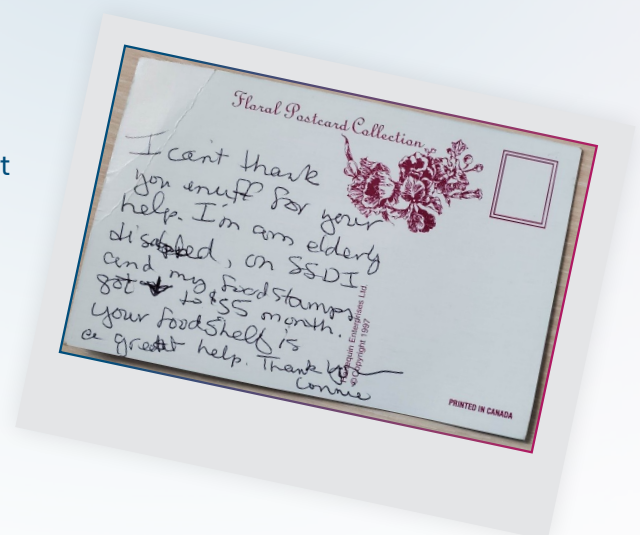 t
Floral Postcard Collection
I can't thank
you enuff for your
help. I'm am elderly
disabled, on SSDI
and my foodstamps
got ↓ to $55 month.
your foodshelf is
a great help. Thank you
Connie
Harlequin Enterprises Ltd.
© Copyright 1997
PRINTED IN CANADA